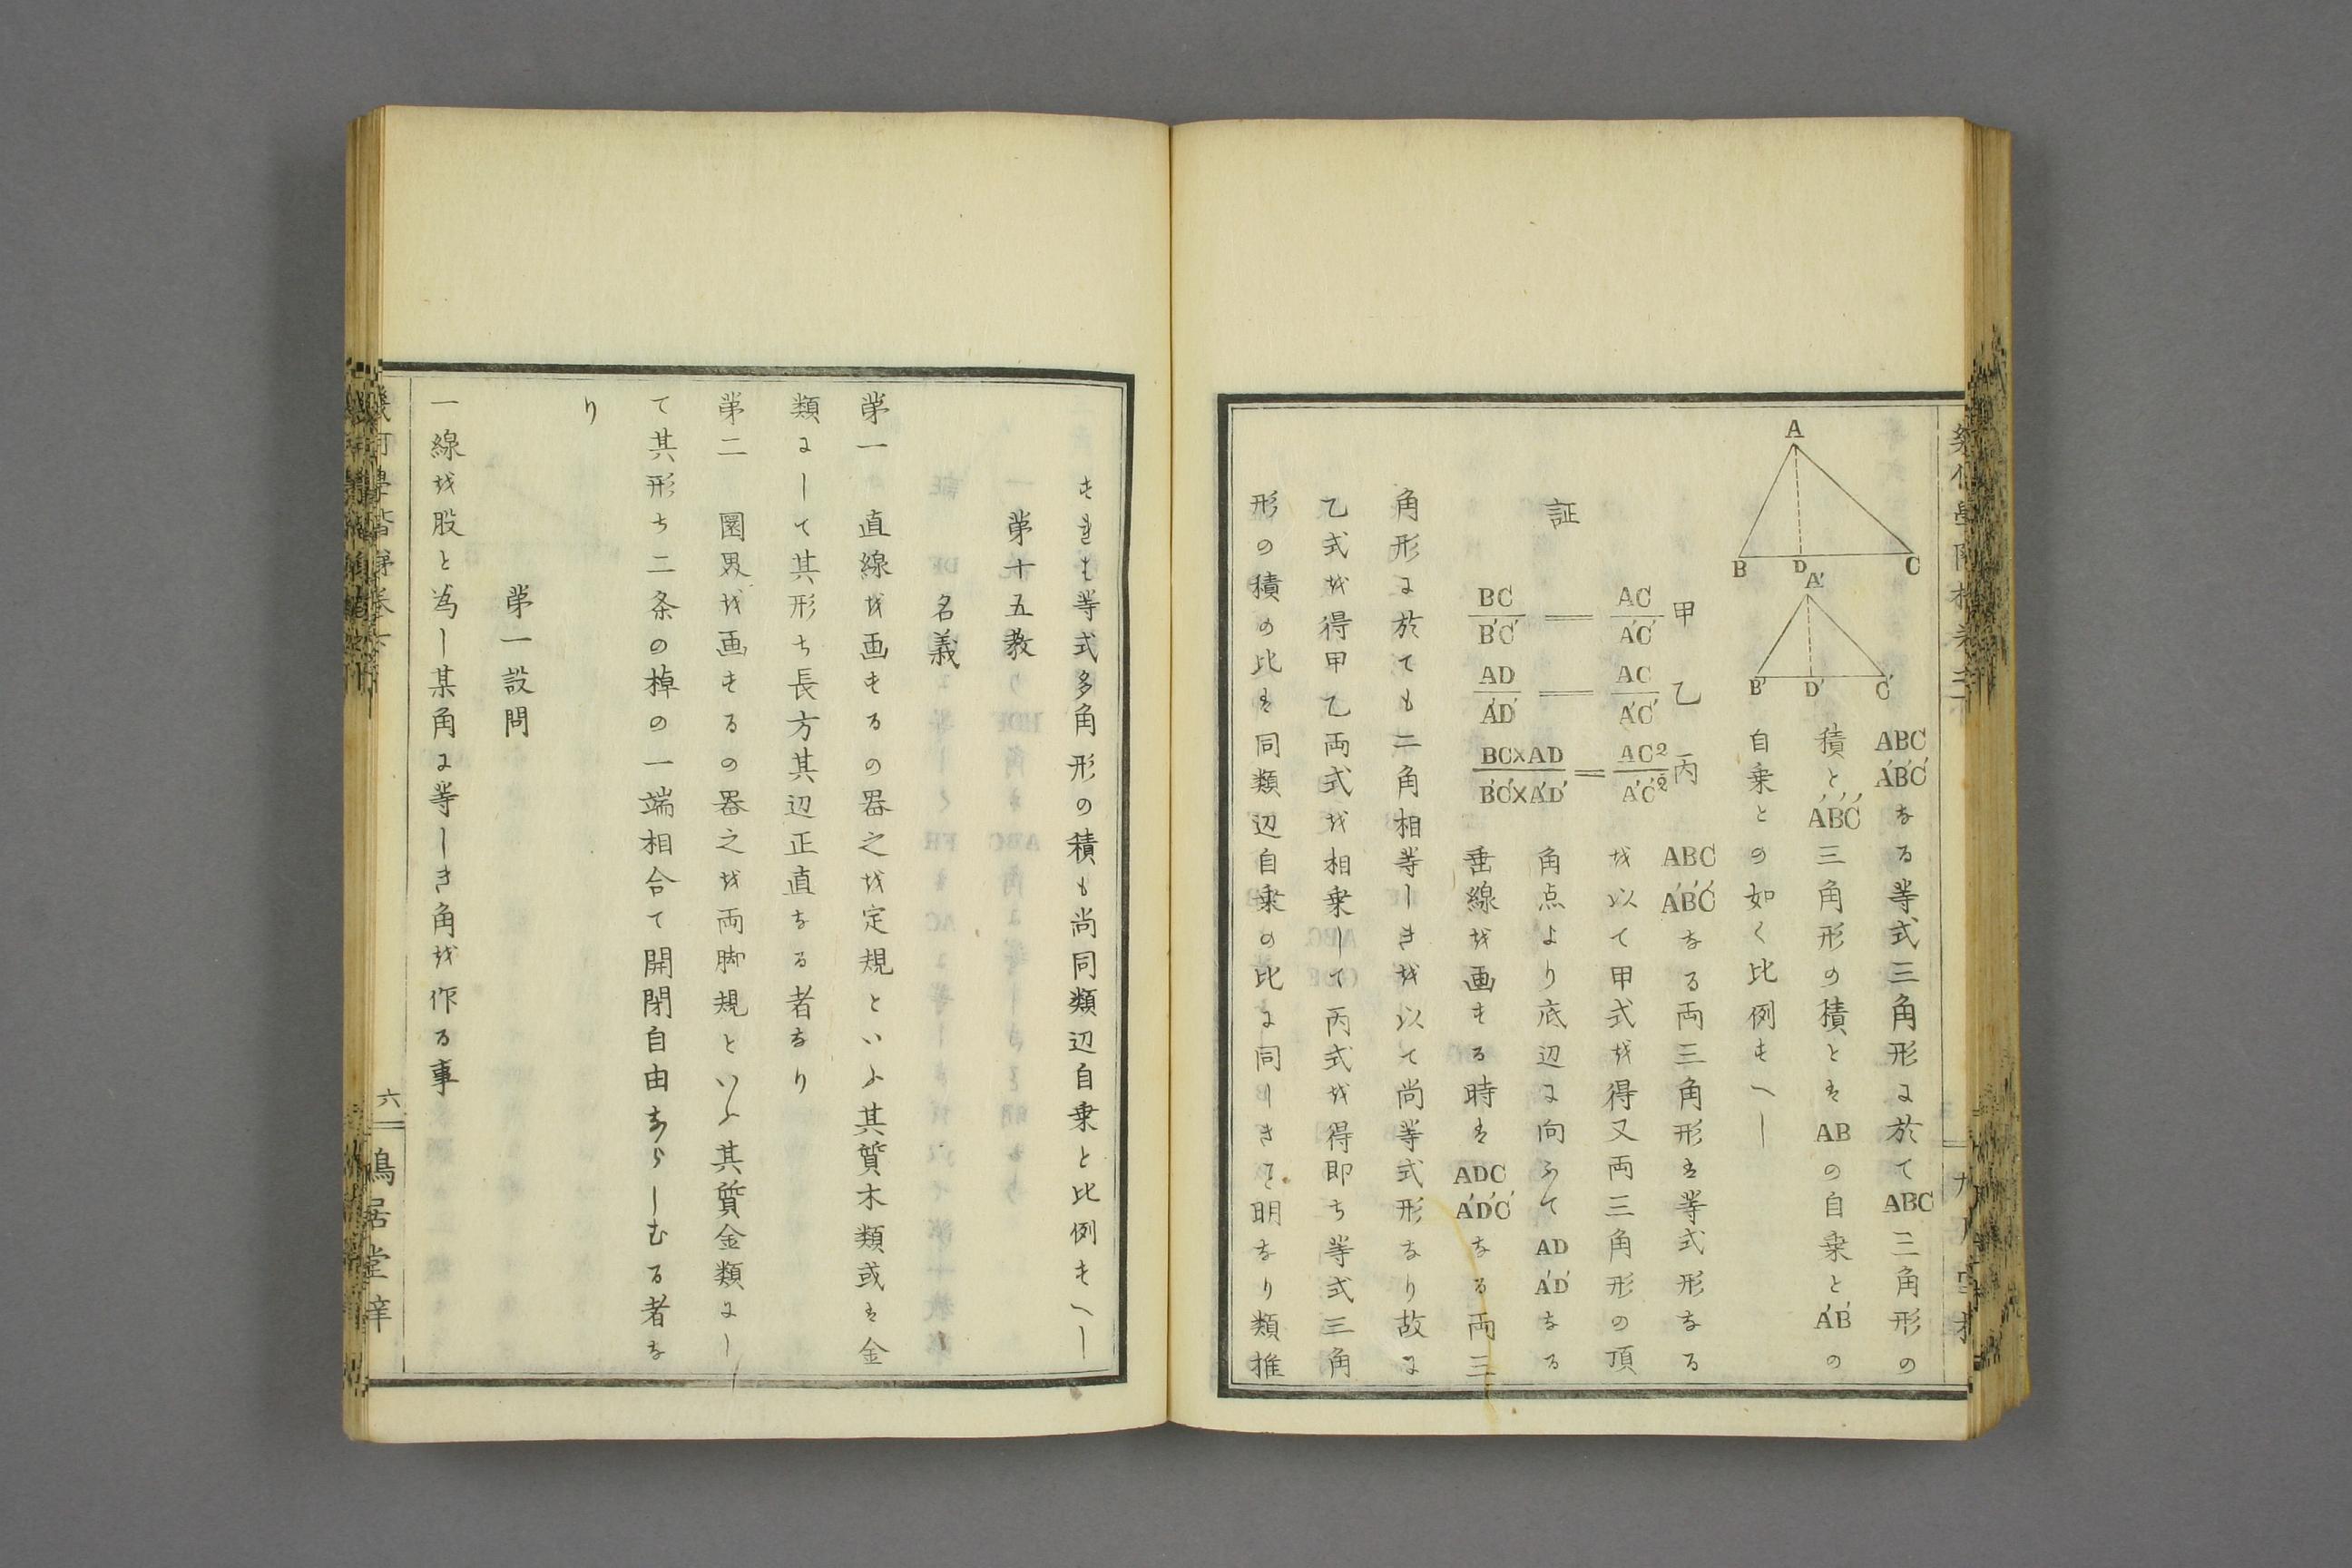 A
B
D
C
A′
B′
D′
C′
ABC A′B′C′なる等式三角形に於てABC三角形の
積とA′B′C′三角形の積とはABの自乗とA′B′の
自乗との如く比例すべし
証
甲
BC/B′C′ = AC/A′C′
乙
AD/A′D′ = AC/A′C′
丙
BC×AD/B′C′×A′D′ = AC²/A′C′²
ABC A′B′C′なる両三角形は等式形なる
を以て甲式を得又両三角形の頂
角点より底辺に向ふてAD A′D′なる
垂線を画する時はADC A′D′C′なる両三
角形に於ても二角相等しきを以て尚等式形なり故に
乙式を得甲乙両式を相乗して丙式を得即ち等式三角
形の積の比は同類辺自乗の比に同しきを明なり類推
すれも等式多角形の積も尚同類辺自乗と比例すべし
第十五教
名義
第一 直線を画するの器之を定規といふ其質木類或は金
類にして其形ち長方其辺正直なる者なり
第二 圏界を画するの器之を両脚規といふ其質金類にし
て其形ち二条の棹の一端相合て開閉自由ならしむる者な
り
第一設問
一線を股と為し某角に等しき角を作る事
六